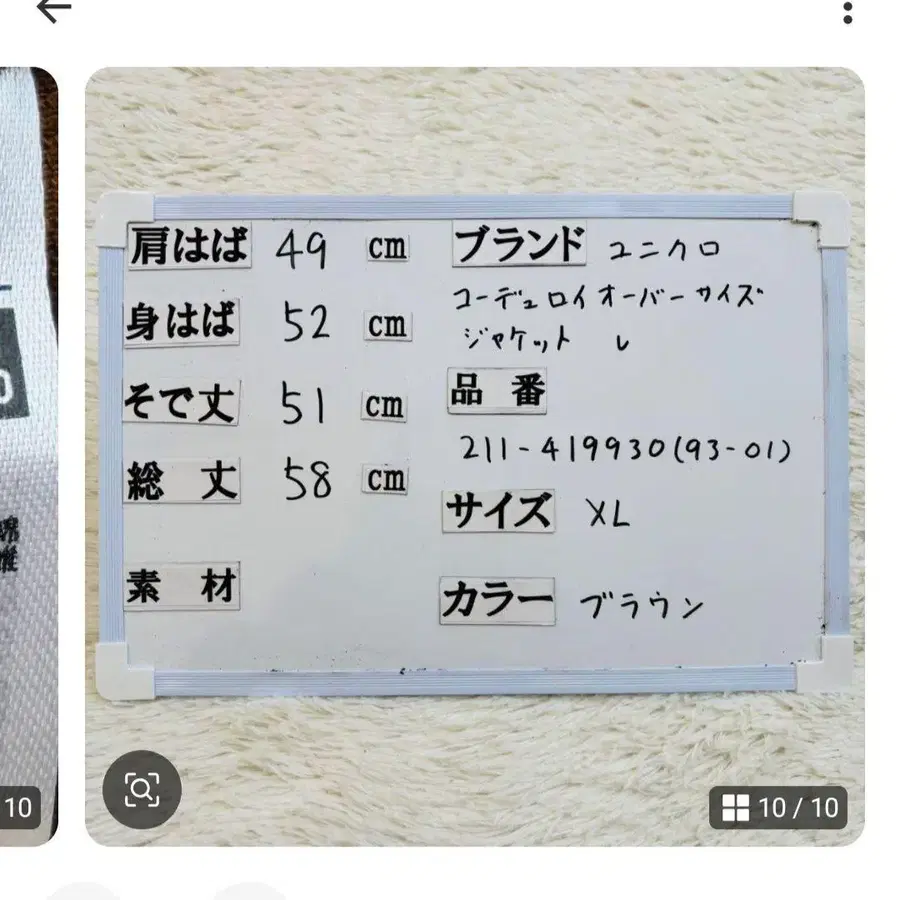 肩はば 49 cm
身はば 52 cm
そで丈 51 cm
総 丈 58 cm
素 材
ブランド ユニクロ
コーデュロイオーバーサイズ
ジャケット レ
品 番
211-419930(93-01)
サイズ XL
カラー ブラウン
10
10 / 10